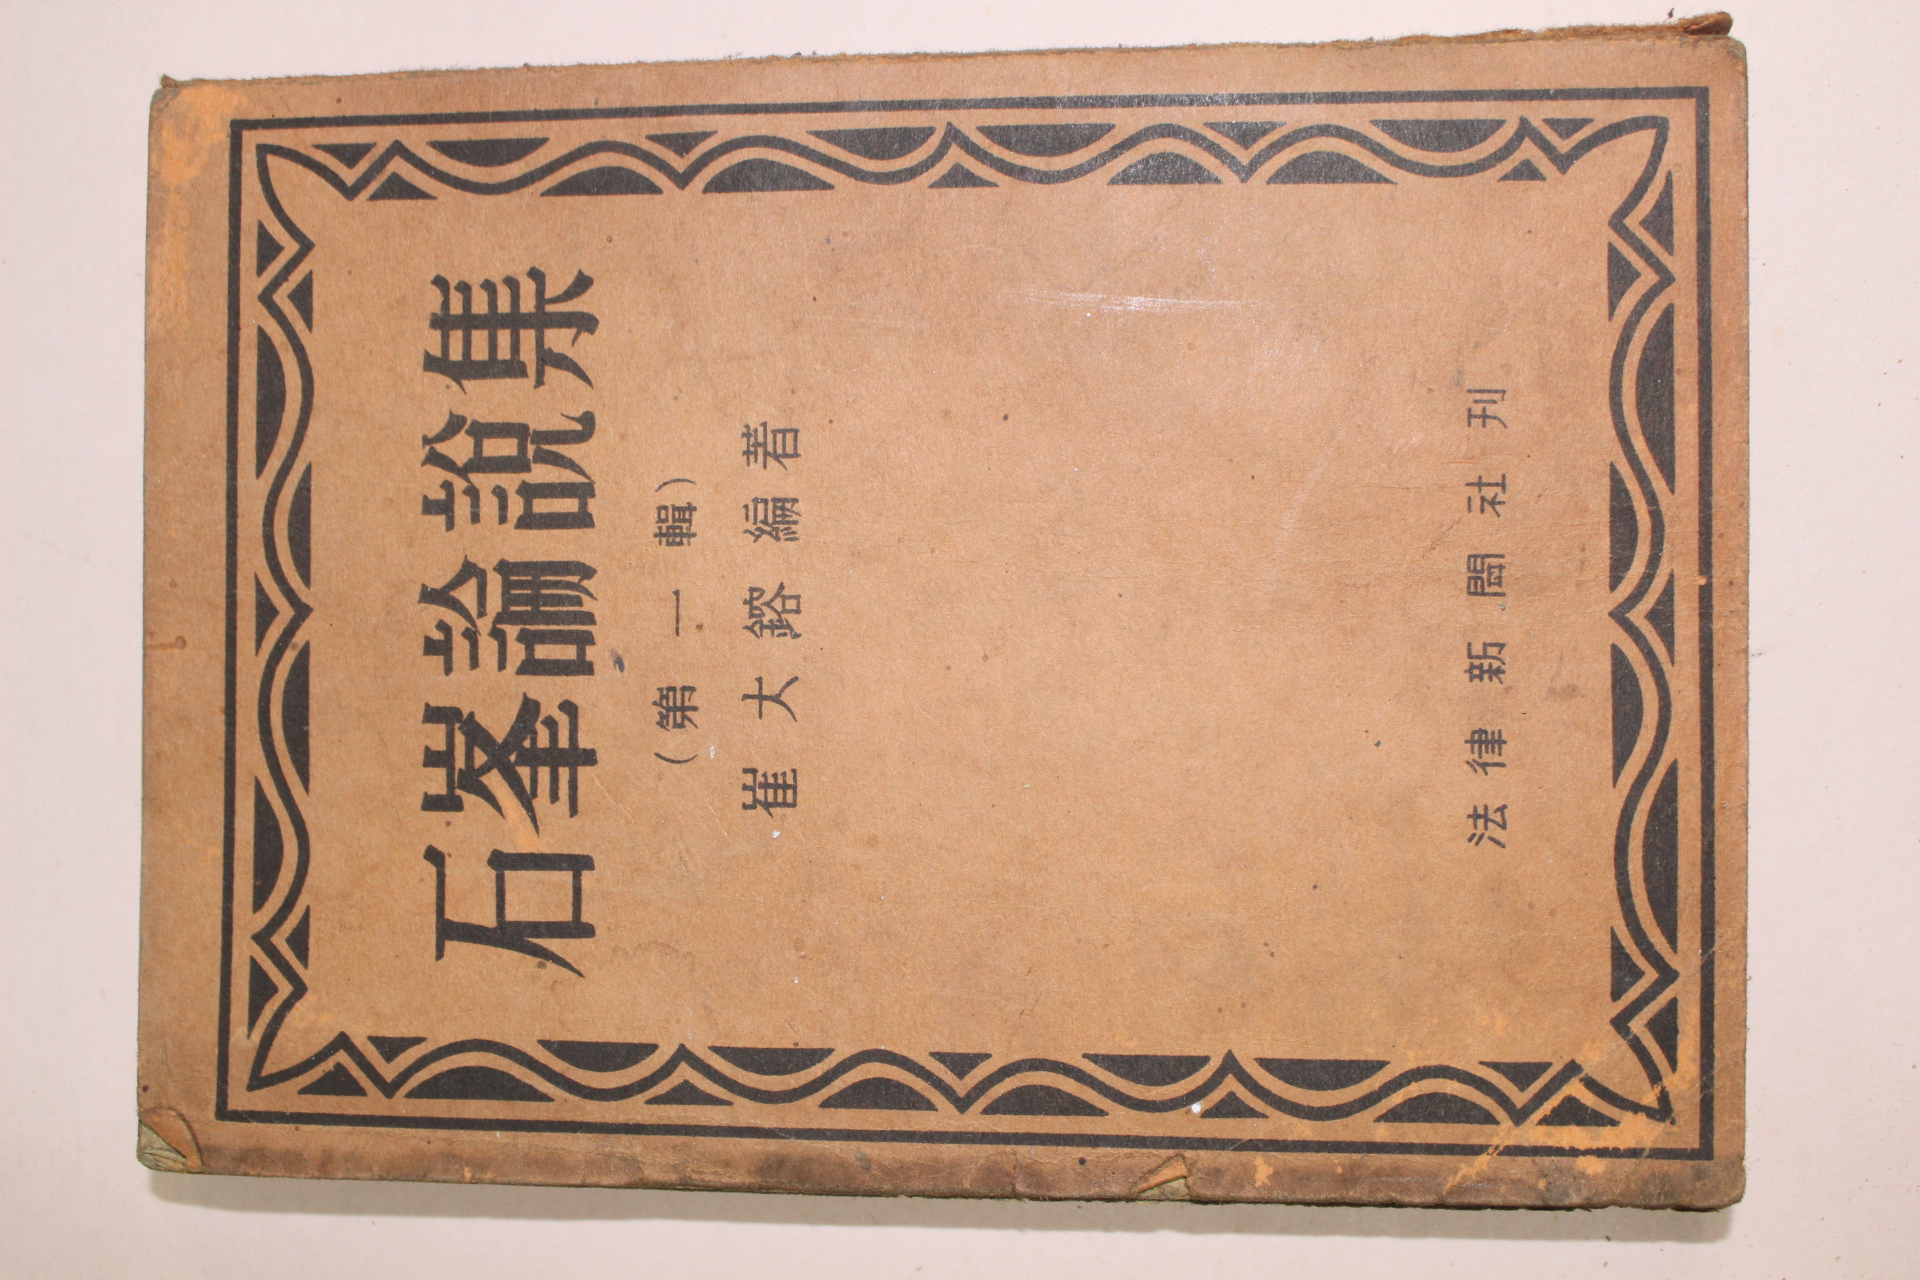 石峯論說集
(第一輯)
崔大鎔編著
法律新聞社刊